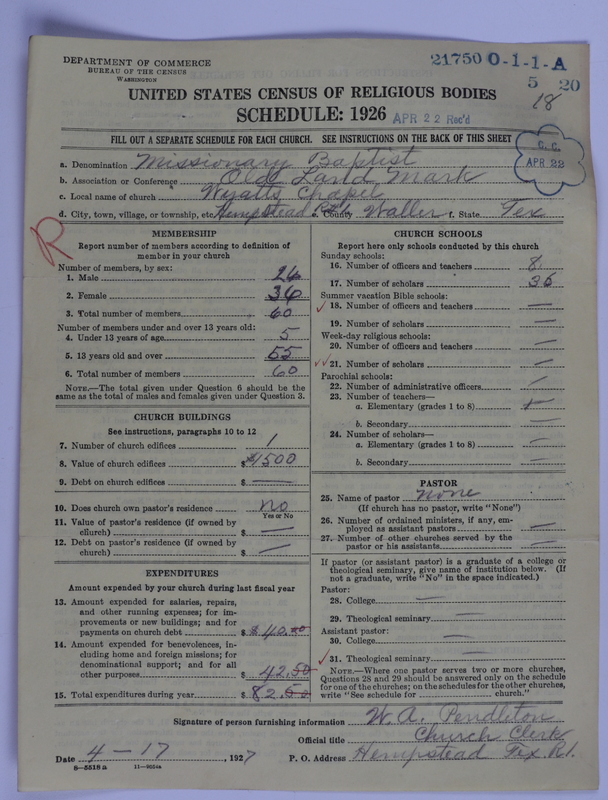 DEPARTMENT OF COMMERCE
BUREAU OF THE CENSUS
WASHINGTON
21750 O-1-1-A
5 20
18
UNITED STATES CENSUS OF RELIGIOUS BODIES
SCHEDULE: 1926
APR 22 Rec'd
FILL OUT A SEPARATE SCHEDULE FOR EACH CHURCH. SEE INSTRUCTIONS ON THE BACK OF THIS SHEET
C.C.
APR 22
a. Denomination Missionary Baptist
b. Association or Conference Old Land Mark
c. Local name of church Wyatts Chapel
d. City, town, village, or township, etc. Hempstead e. County Waller f. State Tex
R
MEMBERSHIP
Report number of members according to definition of
member in your church
Number of members, by sex:
1. Male 26
2. Female 36
3. Total number of members 60
Number of members under and over 13 years old:
4. Under 13 years of age 5
5. 13 years old and over 55
6. Total number of members 60
NOTE.—The total given under Question 6 should be the
same as the total of males and females given under Question 3.
CHURCH BUILDINGS
See instructions, paragraphs 10 to 12
7. Number of church edifices 1
8. Value of church edifices $1500
9. Debt on church edifices $ —
10. Does church own pastor's residence no
Yes or No
11. Value of pastor's residence (if owned by
church) $ —
12. Debt on pastor's residence (if owned by
church) $ —
EXPENDITURES
Amount expended by your church during last fiscal year
13. Amount expended for salaries, repairs,
and other running expenses; for im-
provements or new buildings; and for
payments on church debt $ $40.00
14. Amount expended for benevolences, in-
cluding home and foreign missions; for
denominational support; and for all
other purposes $ 42.50
15. Total expenditures during year $ 82.50
CHURCH SCHOOLS
Report here only schools conducted by this church
Sunday schools:
16. Number of officers and teachers 8
17. Number of scholars 35
Summer vacation Bible schools:
18. Number of officers and teachers —
19. Number of scholars —
Week-day religious schools:
20. Number of officers and teachers —
21. Number of scholars —
Parochial schools:
22. Number of administrative officers —
23. Number of teachers—
a. Elementary (grades 1 to 8) —
b. Secondary —
24. Number of scholars—
a. Elementary (grades 1 to 8) —
b. Secondary —
PASTOR
25. Name of pastor none
(If church has no pastor, write "None")
26. Number of ordained ministers, if any, em-
ployed as assistant pastors —
27. Number of other churches served by the
pastor or his assistants —
If pastor (or assistant pastor) is a graduate of a college or
theological seminary, give name of institution below. (If
not a graduate, write "No" in the space indicated.)
Pastor:
28. College —
29. Theological seminary —
Assistant pastor:
30. College —
31. Theological seminary —
NOTE.—Where one pastor serves two or more churches,
Questions 28 and 29 should be answered only on the schedule
for one of the churches; on the schedules for the other churches,
write "See schedule for church."
Signature of person furnishing information W. A. Pendleton
Official title Church Clerk
Date 4-17, 1927 P. O. Address Hempstead Tex. R1.
8—5518 a 11—9024a